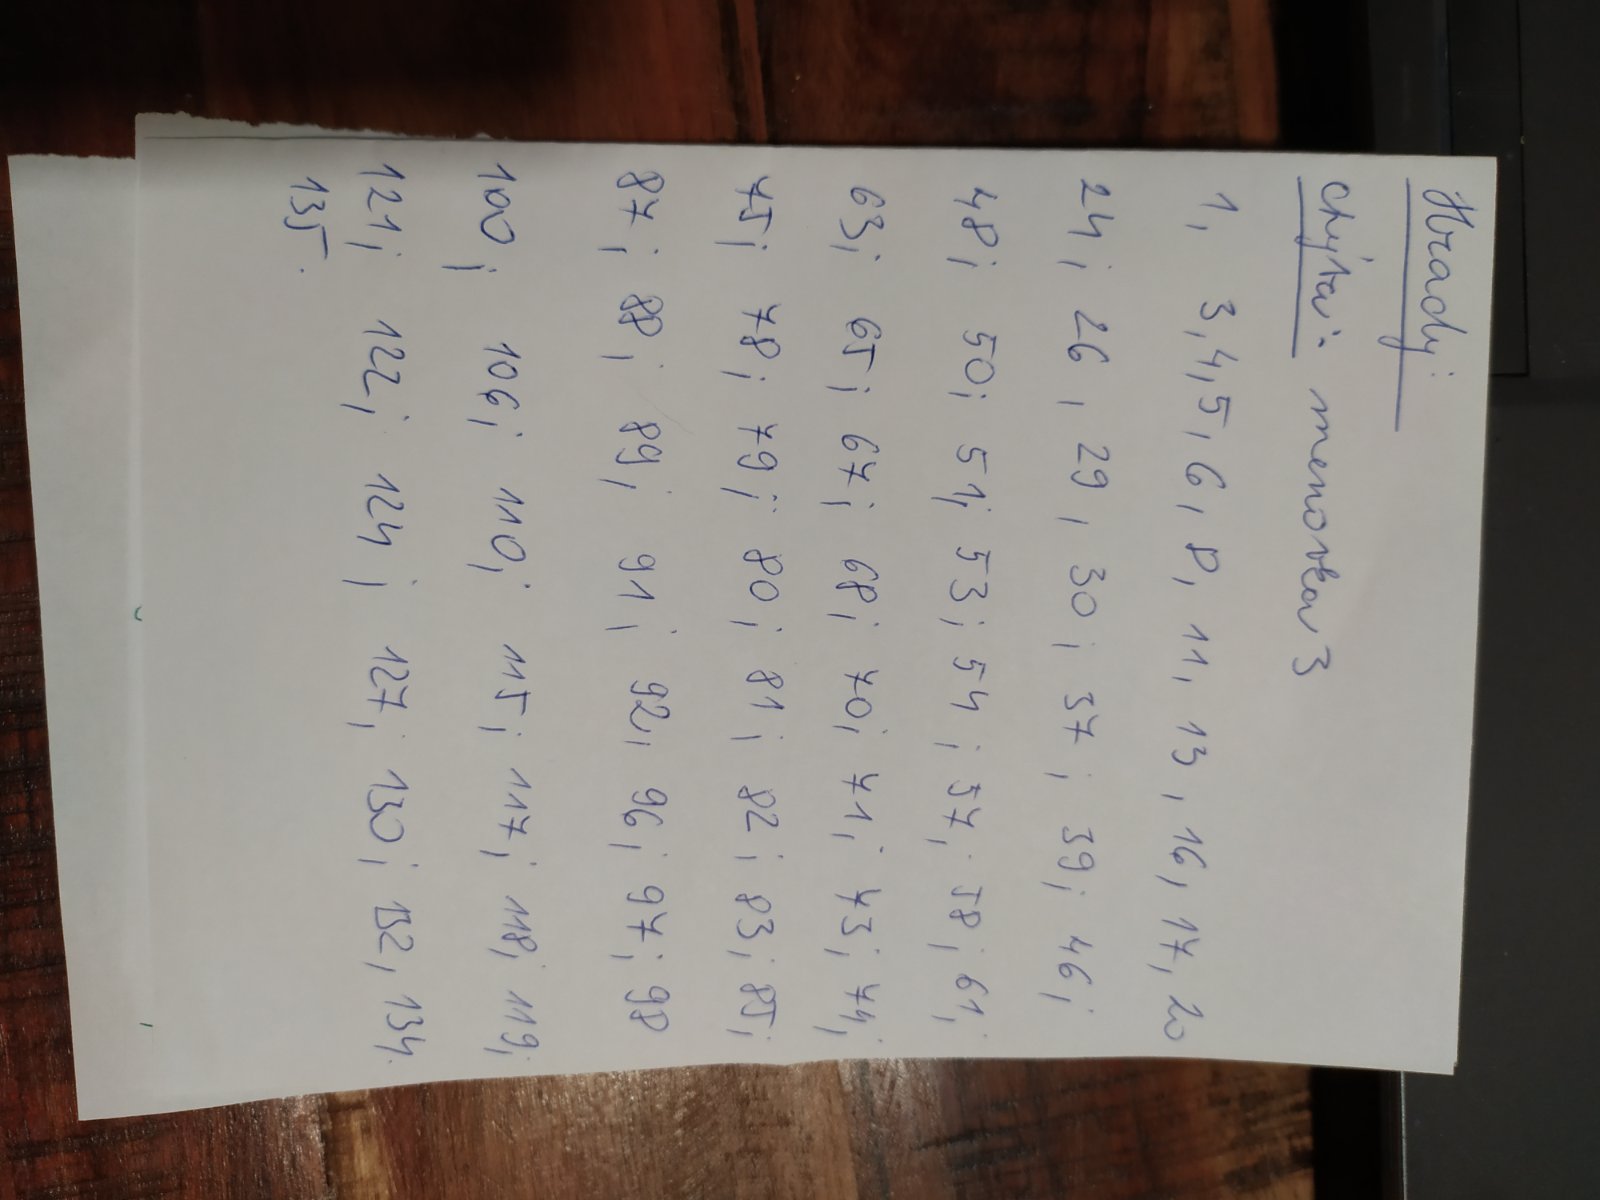 Hrady:
chýba: menovka 3
1, 3, 4, 5, 6, 8, 11, 13, 16, 17, 20
24; 26, 29, 30; 37; 39; 46;
48; 50; 51; 53; 54; 57; 58; 61;
63; 65; 67; 68; 70; 71; 73; 74;
75; 78; 79; 80; 81; 82; 83; 85;
87; 88; 89; 91; 92; 96; 97; 98
100; 106; 110; 115; 117; 118; 119;
121; 122; 124; 127; 130; 132, 134.
135.